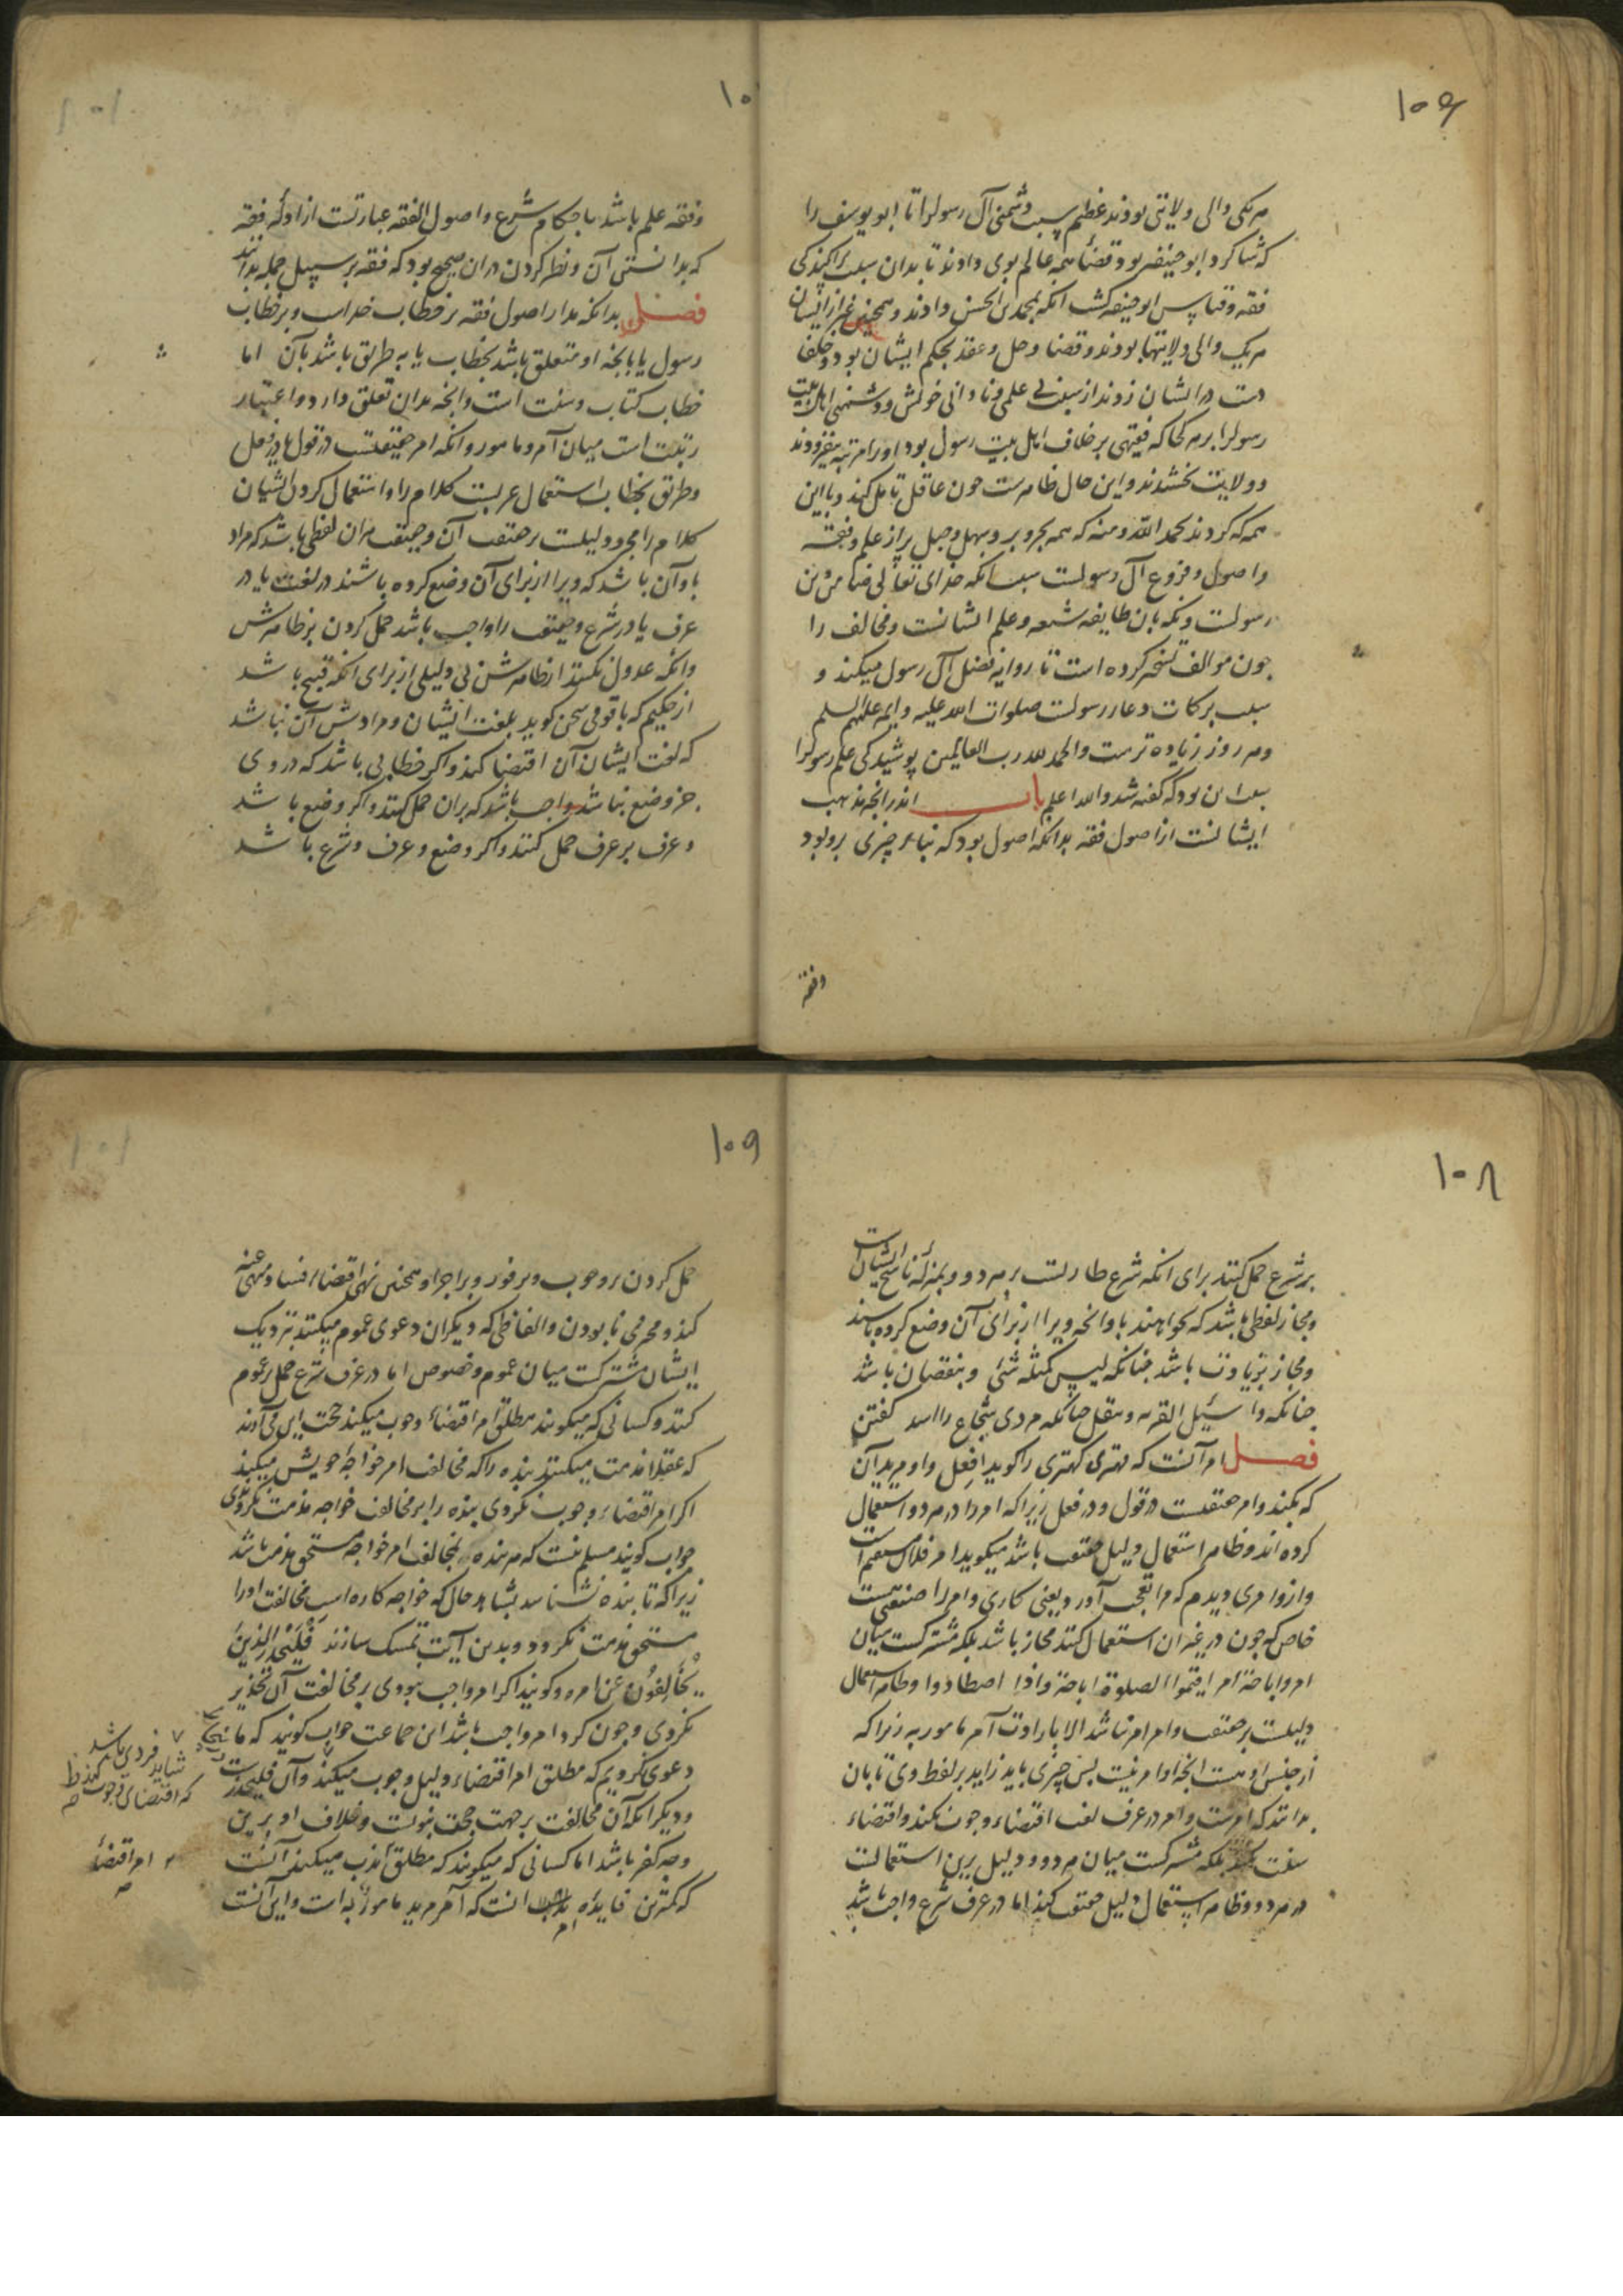 ۱۰۶
هر یکی والی ولایتی بودند عظیم بسبب دشمنی آل رسول را تا ابو یوسف را
که شاکرد ابو حنیفه بود قضاء همه عالم بوی دادند تا بدان سبب پراکندکی
فقه و قیاس ابو حنیفه کشت انکه بمحمد بن الحسن دادند و همچنین غیر از ایشان
هر یک والی ولایتها بودند و قضا و حل و عقد بحکم ایشان بود و خلفا
دست در ایشان زدند از سبب بی علمی و نادانی خویش و دشمنی اهل بیت
رسول را هر کجا که فقیهی بر خلاف اهل بیت رسول بود او را مرتبه بیفزودند
و ولایت بخشیدند و این حال ظاهرست چون عاقل تأمل کند و با این
همه که کردند بحمد الله و منه که همه بحر و بر و سهل و جبل پر از علم و فقه
و اصول و فروع آل رسولست بسبب انکه خدای تعالی
رسولست و نکه بان طایفه شیعه و علم ایشانست و مخالف را
چون موالف تسخیر کرده است تا روایه فضل آل رسول میکند و
بسبب برکات و دعاء رسولست صلوات الله علیه و ایمه علیهم السلم
و هر روز زیاده ترست و الحمد لله رب العالمین پوشیدکی علم رسول را
سبب این بود که کفته شد و الله اعلم باب اندر انچه مذهب
ایشانست از اصول فقه بدانکه اصول بود که بناء چیزی برو بود
و فقه
۱۰
و فقه علم باشد باحکام شرع و اصول الفقه عبارتست از ادله فقه
که بدانستن آن و نظر کردن در ان صحیح بود که فقه بر سبیل جمله بدانند
فصل بدانکه مدار اصول فقه بر خطاب خداست و بر خطاب
رسول یا بانچه او متعلق باشد بخطاب یا به طریق باشد بآن اما
خطاب کتاب و سنت است و انچه بدان تعلق دارد و اعتبار
رتبت است میان آمر و مامور و انکه امر حقیقتست در قول یا در فعل
و طریق بخطاب استعمال عربست کلام را و استعمال کردن ایشان
کلام را مجرد دلیلست بر حقیقت آن و حقیقت هر ان لفظی باشد که مراد
باو آن باشد که ویرا از برای آن وضع کرده باشند در لغت یا در
عرف یا در شرع و حقیقت را واجب باشد حمل کردن بر ظاهرش
و انکه عدول نکنند از ظاهرش بی دلیلی از برای انکه قبیح باشد
از حکیم که با قومی سخن کوید بلغت ایشان و مرادش آن نباشد
که لغت ایشان آن اقتضا کند و اکر خطابی باشد که در وی
جز وضع نباشد واجب باشد که بران حمل کنند و اکر وضع باشد
و عرف بر عرف حمل کنند و اکر وضع و عرف و شرع باشد
۱۰۸
بر شرع حمل کنند برای انکه شرع طاریست بر هر دو و بمنزله ناسخ ایشان است
و مجاز لفظی باشد که نخواهند باو انچه ویرا از برای آن وضع کرده باشند
و مجاز بزیادت باشد چنانکه لیس کمثله شئ و بنقصان باشد
چنانکه واسئیل القریه و بنقل چنانکه مردی شجاع را اسد کفتن
فصل امر آنست که مهتری کهتری را کوید افعل و او مرید آن
که بکند و امر حقیقتست در قول و در فعل زیرا که امر را در هر دو استعمال
کرده اند و ظاهر استعمال دلیل حقیقت باشد میکوید امر فلان مستقیم است
و ازو امری دیدم که مرا تعجب آورد یعنی کاری و امر را صنعتی نیست
خاص که چون در غیر ان استعمال کنند مجاز باشد بلکه مشترکست میان
امر و اباحة امر اقیموا الصلوة اباحة و اذا اصطادوا و ظاهر استعمال
دلیلست بر حقیقت و امر امر نباشد الا بارادت آمر مامور به زیرا که
از جنس او هست انچه او امر نیست پس چیزی باید زاید بر لفظ وی تا بان
بدانند که امرست و امر در عرف لغت اقتضاء وجوب نکند و اقتضاء
سنت نکند بلکه مشترکست میان هر دو و دلیل برین استعمالست
در هر دو و ظاهر استعمال دلیل حقیقت کند اما در عرف شرع واجب باشد
۱۰۹
حمل کردن بر وجوب و بر فور و بر اجزا و همچنین نهی اقتضاء فساد منهی عنه
کند و مجزی نابودن و الفاظی که دیکران دعوی عموم میکنند نزدیک
ایشان مشترکست میان عموم و خصوص اما در عرف شرع حمل بر عموم
کنند و کسانی که میکویند مطلق امر اقتضاء وجوب میکند حجت این می آوند
که عقلا مذمت میکنند بنده را که مخالف امر خواجه خویش میکند
اکر امر اقتضاء وجوب نکردی بنده را بر مخالفت خواجه مذمت نکردندی
جواب کویند مسلم نیست که هر بنده بمخالفت امر خواجه مستحق مذمت باشد
زیرا که تا بنده نشناسد بشاهد حال که خواجه کاره است مخالفت او را
مستحق مذمت نکردد و بدین آیت تمسک سازند فلیحذر الذین
یخالفون عن امره و کویند اکر امر واجب نبودی بر مخالفت آن تحذیر
نکردی و چون کرد امر واجب باشد این جماعت جواب کویند که ما
دعوی نکردیم که مطلق امر اقتضاء دلیل وجوب میکند و آن فلیحذرست
و دیکر انکه آن مخالفت بر جهت جحد نبوت و خلاف او برین
وجه کفر باشد اما کسانی که میکویند که مطلق امر ندب میکند آنست
که کمترین فایده امر انست که آمر مرید مامور به است و این آنست
شاید فردی باشد
که اقتضای وجوب کند ظ
امر اقتضاء